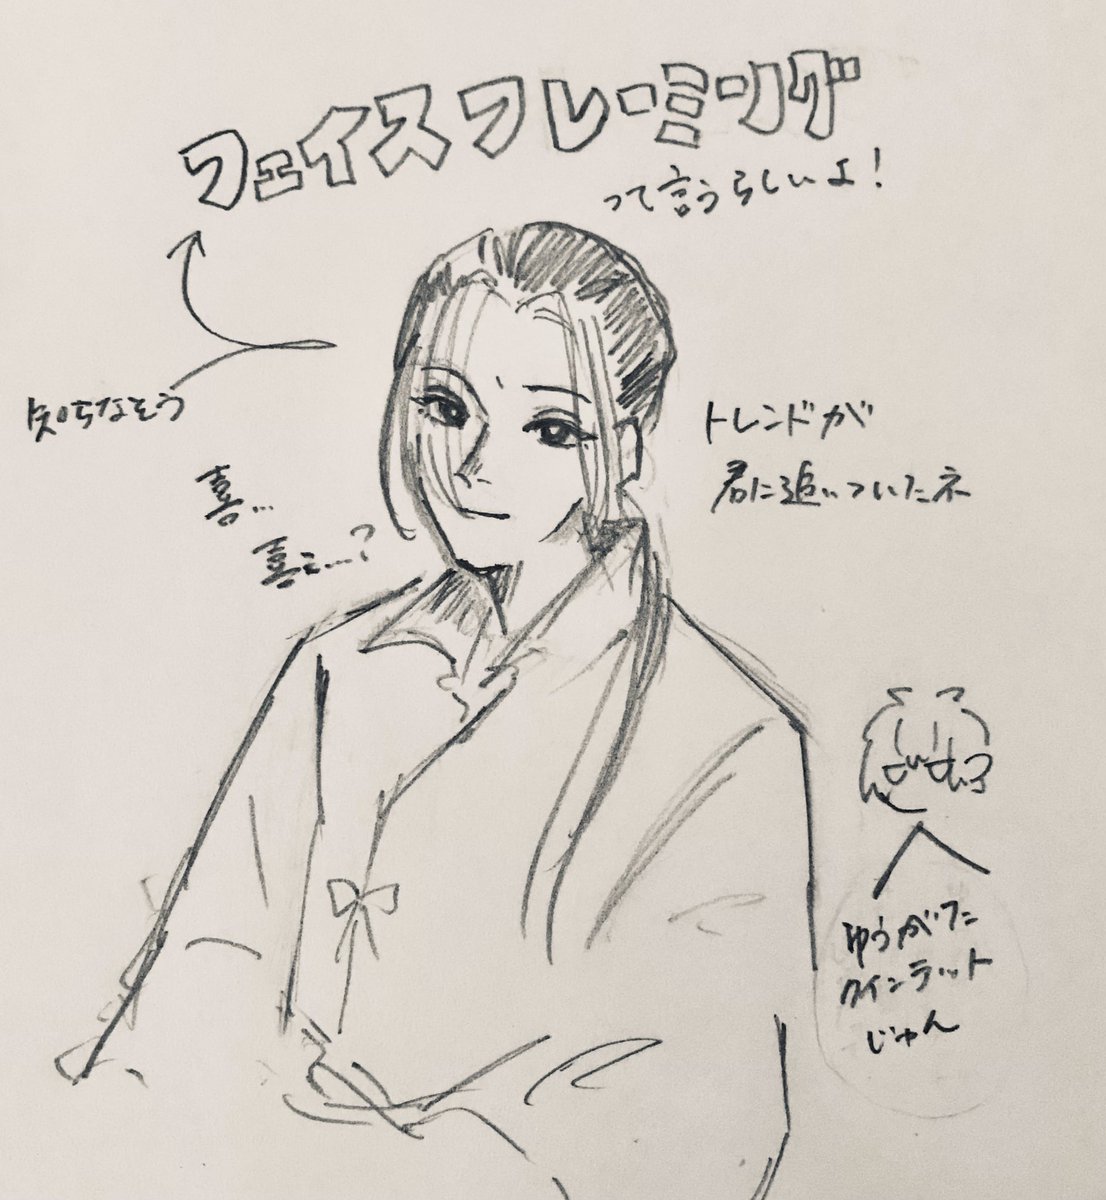 フェイスフレーミング
って言うらしいよ！
知らなそう
喜…
喜ニ…？
トレンドが
君に追いついたネ
ゆうがた
クインテット
じゃん